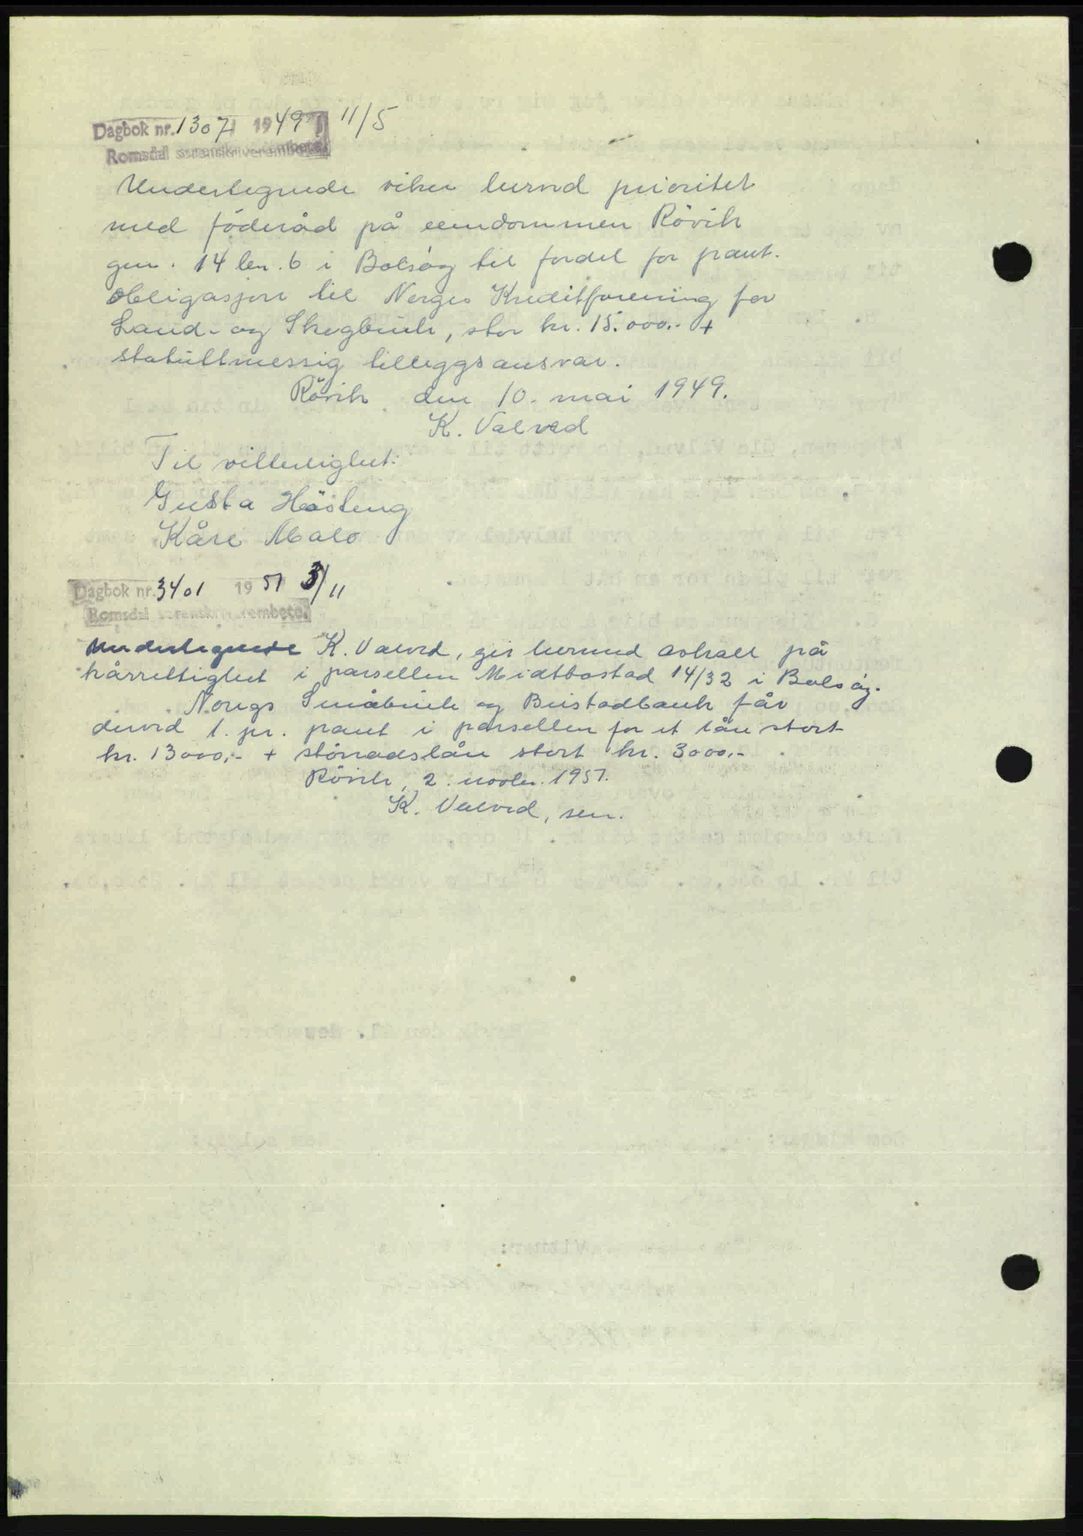 Dagbok nr. 1307 1949 11/5
Romsdal sorenskriverembete
Undertegnede viker herved prioritet
med föderåd på eiendommen Rövik
gnr. 14 bnr. 6 i Bolsöy til fordel for pant-
obligasjon til Norges Kreditforening for
Land- og Skogbruk, stor kr. 15.000.- +
statuttmessig tilleggsansvar.
Rövik den 10. mai 1949.
K. Valved
Til vitterlighet:
Gusta Hösteng
Kåre Malo
Dagbok nr. 3401 1951 3/11
Romsdal sorenskriverembete.
Undertegnede K. Valved, gir herved avkall på
kårrettighet i parsellen Midtbostad 14/32 i Bolsöy.
Noregs Småbruk og Bustadbank får
derved 1. pr. pant i parsellen for et lån stort
kr. 13000,- + stönadslån stort kr. 3000,-
Rövik, 2. novbr. 1951.
K. Valved, sen.